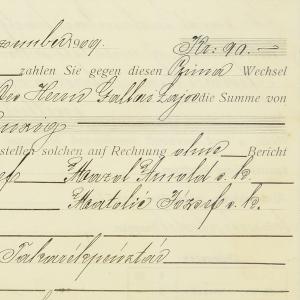 zember 1909. Kr: 90.—
zahlen Sie gegen diesen Prima Wechsel
Der Herrn Gallan Lajos die Summe von
unzig
stellen solchen auf Rechnung ohne Bericht
Arnold s. k.
Matolić József s. k.
Takarékpénztár